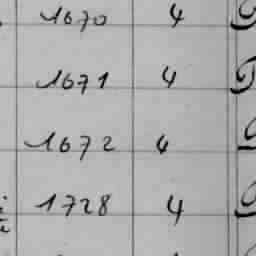 1670 4
1671 4
1672 4
1728 4